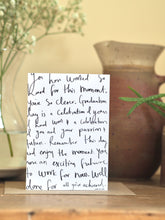 You have worked so
hard for this moment.
You're so clever. Graduation
day is a celebration of years
of hard work & a celebration
of you and your passions &
future. Remember this day
and enjoy the moment you
have an exciting future
to work for now. Well
done for all you've achieved.